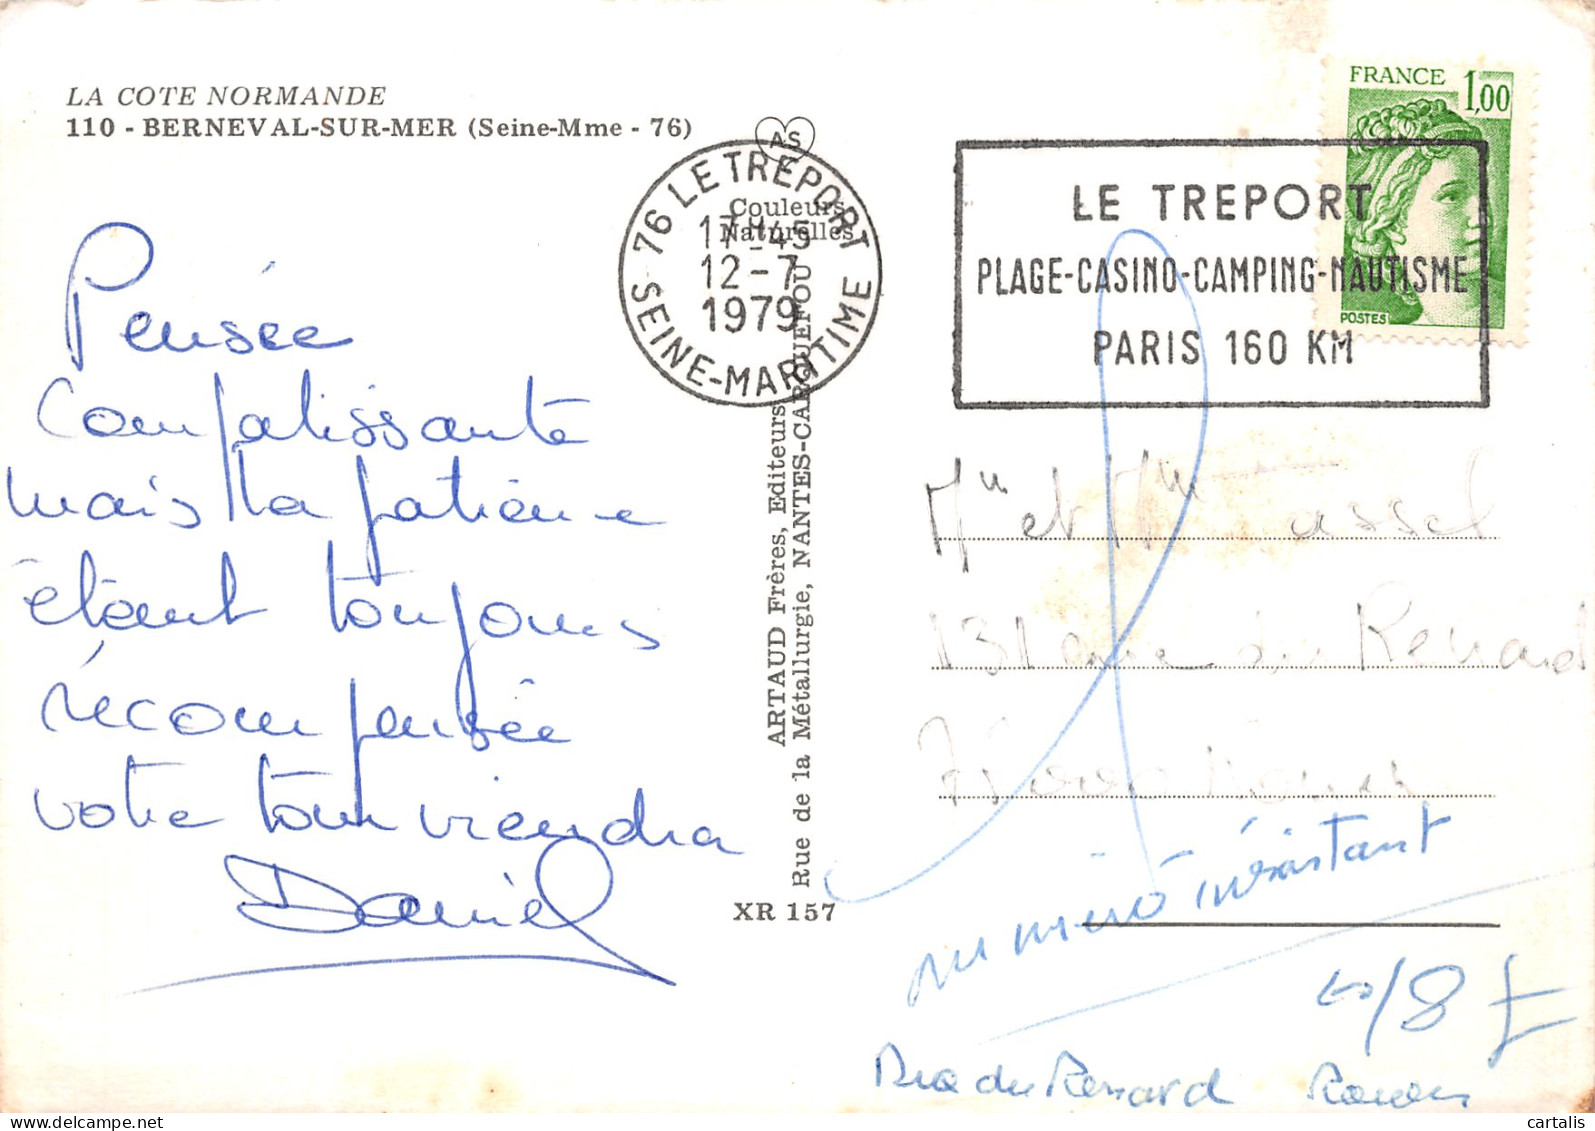 LA COTE NORMANDE
110 - BERNEVAL-SUR-MER (Seine-Mme - 76)
Pensée
compatissante
mais la patience
étant toujours
récompensée
votre tour viendra
Daniel
AS
Couleurs
Naturelles
76 LE TREPORT
17H45
12-7
1979
SEINE-MARITIME
ARTAUD Frères, Editeurs
Rue de la Métallurgie, NANTES-CARQUEFOU
XR 157
FRANCE 1,00
POSTES
LE TREPORT
PLAGE-CASINO-CAMPING-NAUTISME
PARIS 160 KM
Mr et Mme assel
131 rue du Renard
76000 Rouen
numéro inexistant
Rue du Renard Rouen
cartalis